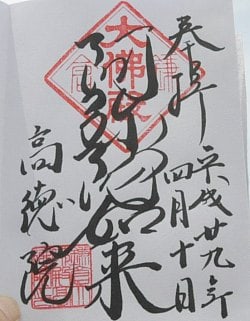 奉拝
平成廿九年
四月十日
大佛殿
阿弥陀如来
高徳院